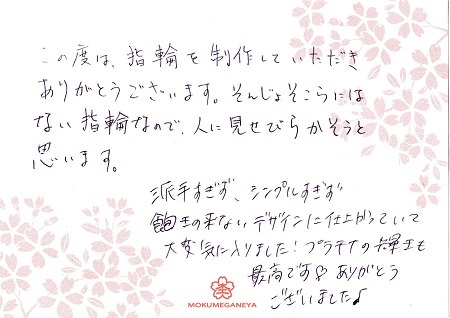 この度は、指輪を制作していただき
ありがとうございます。そんじょそこらには
ない指輪なので、人に見せびらかそうと
思います。
派手すぎず、シンプルすぎず
飽きの来ないデザインに仕上がっていて
大変気に入りました!プラチナの輝きも
最高です♡ありがとう
ございました♪
MOKUMEGANEYA